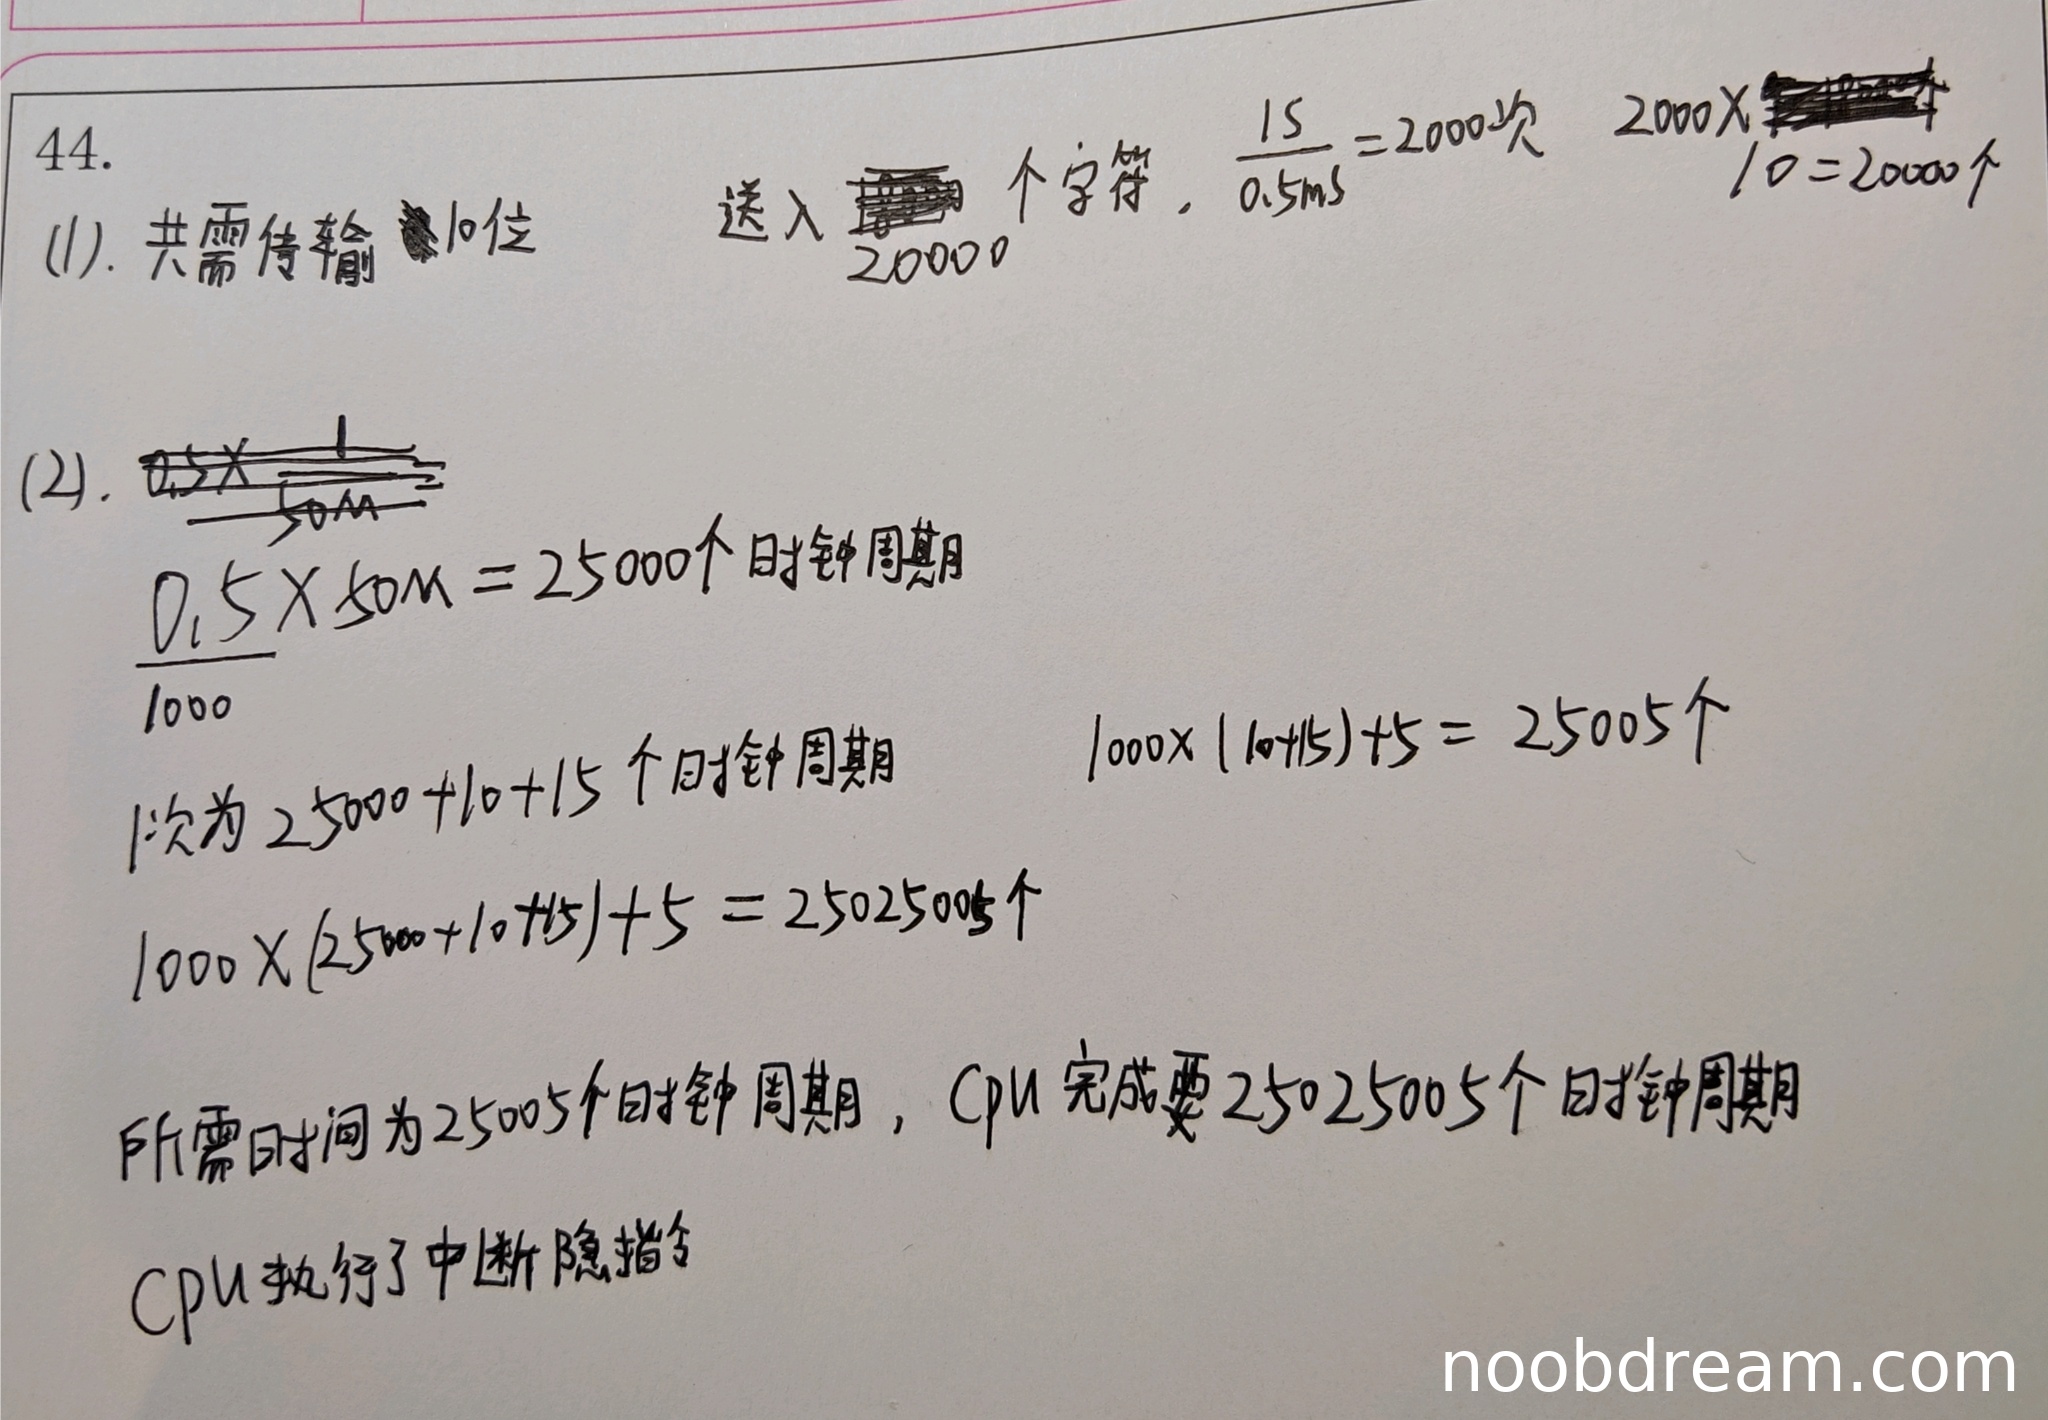 44.
(1). 共需传输 10位 送入 20000 个字符, 1S/0.5ms =2000次 2000X 10=20000个
(2). 0.5X 1/50M =
0.5/1000 X 50M = 25000个时钟周期
1次为 25000+10+15 个时钟周期 1000x(10+15)+5= 25005个
1000X(25000+10+15)+5 = 25025005个
所需时间为25005个时钟周期, CPU 完成要25025005个时钟周期
CPU执行了中断隐指令
noobdream.com